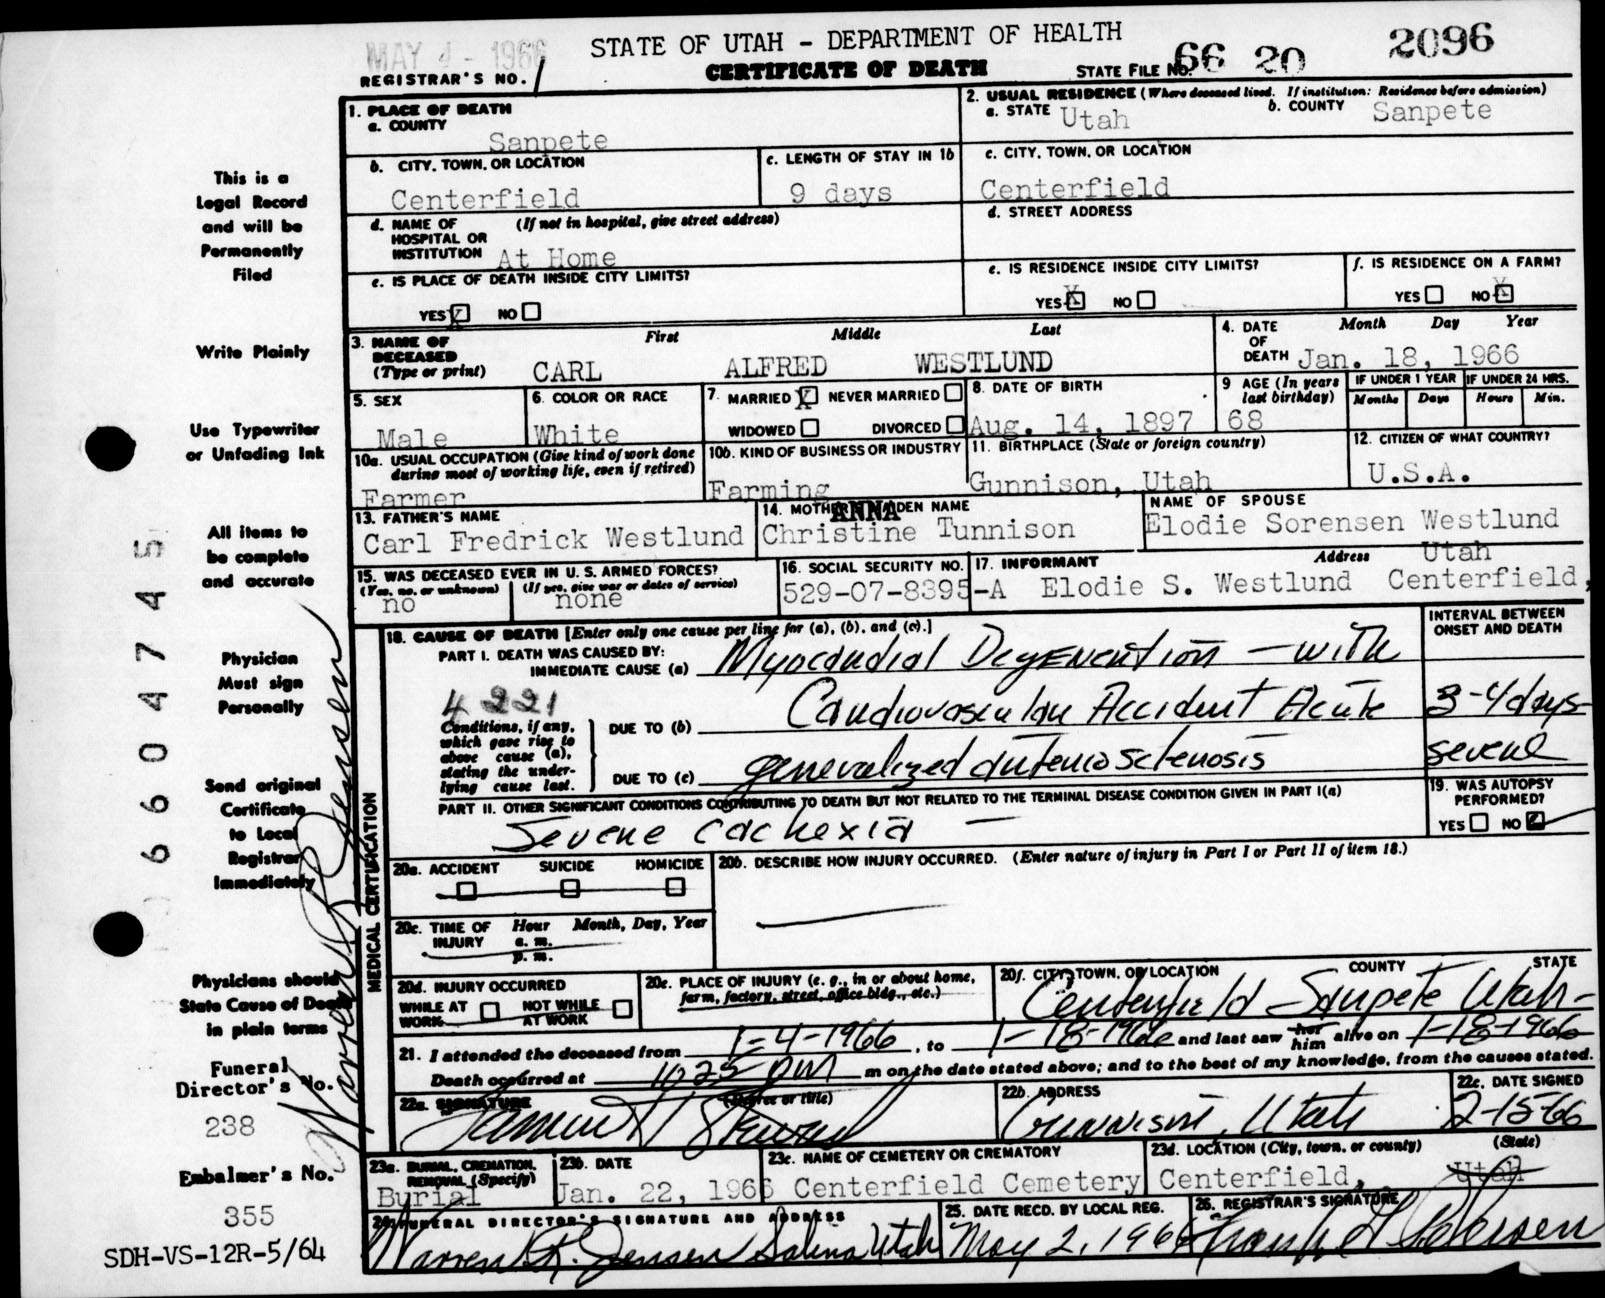 MAY 4 - 1966
STATE OF UTAH - DEPARTMENT OF HEALTH
2096
REGISTRAR'S NO. 1
CERTIFICATE OF DEATH
STATE FILE NO. 66 20
1. PLACE OF DEATH
a. COUNTY
Sanpete
2. USUAL RESIDENCE (Where deceased lived. If institution: Residence before admission)
a. STATE Utah
b. COUNTY Sanpete
b. CITY, TOWN, OR LOCATION
Centerfield
c. LENGTH OF STAY IN 1b
9 days
c. CITY, TOWN, OR LOCATION
Centerfield
d. NAME OF HOSPITAL OR INSTITUTION (If not in hospital, give street address)
At Home
d. STREET ADDRESS
e. IS PLACE OF DEATH INSIDE CITY LIMITS?
YES X NO
e. IS RESIDENCE INSIDE CITY LIMITS?
YES X NO
f. IS RESIDENCE ON A FARM?
YES NO X
3. NAME OF DECEASED (Type or print)
First Middle Last
CARL ALFRED WESTLUND
4. DATE OF DEATH Month Day Year
Jan. 18, 1966
5. SEX
Male
6. COLOR OR RACE
White
7. MARRIED X NEVER MARRIED
WIDOWED DIVORCED
8. DATE OF BIRTH
Aug. 14, 1897
9 AGE (In years last birthday)
68
IF UNDER 1 YEAR IF UNDER 24 HRS.
Months Days Hours Min.
10a. USUAL OCCUPATION (Give kind of work done during most of working life, even if retired)
Farmer
10b. KIND OF BUSINESS OR INDUSTRY
Farming
11. BIRTHPLACE (State or foreign country)
Gunnison, Utah
12. CITIZEN OF WHAT COUNTRY?
U.S.A.
13. FATHER'S NAME
Carl Fredrick Westlund
14. MOTHER'S MAIDEN NAME
ANNA
Christine Tunnison
NAME OF SPOUSE
Elodie Sorensen Westlund
15. WAS DECEASED EVER IN U. S. ARMED FORCES?
(Yes, no, or unknown) (If yes, give war or dates of service)
no none
16. SOCIAL SECURITY NO.
529-07-8395-A
17. INFORMANT Address
Elodie S. Westlund Centerfield, Utah
18. CAUSE OF DEATH [Enter only one cause per line for (a), (b), and (c).]
INTERVAL BETWEEN ONSET AND DEATH
PART I. DEATH WAS CAUSED BY:
IMMEDIATE CAUSE (a) Myocardial Degeneration - with
4221
Conditions, if any, which gave rise to above cause (a), stating the underlying cause last.
DUE TO (b) Cardiovascular Accident Acute 3-4 days
DUE TO (c) generalized arteriosclerosis severe
PART II. OTHER SIGNIFICANT CONDITIONS CONTRIBUTING TO DEATH BUT NOT RELATED TO THE TERMINAL DISEASE CONDITION GIVEN IN PART I(a)
Severe cachexia -
19. WAS AUTOPSY PERFORMED?
YES NO
MEDICAL CERTIFICATION
20a. ACCIDENT SUICIDE HOMICIDE
20b. DESCRIBE HOW INJURY OCCURRED. (Enter nature of injury in Part I or Part II of item 18.)
20c. TIME OF INJURY Hour Month, Day, Year
a. m.
p. m.
20d. INJURY OCCURRED
WHILE AT WORK NOT WHILE AT WORK
20e. PLACE OF INJURY (e. g., in or about home, farm, factory, street, office bldg., etc.)
20f. CITY, TOWN, OR LOCATION COUNTY STATE
Centerfield Sanpete Utah-
21. I attended the deceased from 1-4-1966, to 1-18-1966 and last saw her him alive on 1-18-1966
Death occurred at 10 25 pm m on the date stated above; and to the best of my knowledge, from the causes stated.
22a. SIGNATURE (Degree or title)
22b. ADDRESS
Gunnison, Utah
22c. DATE SIGNED
2-15-66
23a. BURIAL, CREMATION, REMOVAL (Specify)
Burial
23b. DATE
Jan. 22, 1966
23c. NAME OF CEMETERY OR CREMATORY
Centerfield Cemetery
23d. LOCATION (City, town, or county) (State)
Centerfield, Utah
24. FUNERAL DIRECTOR'S SIGNATURE AND ADDRESS
Warren R. Jensen Salina Utah
25. DATE RECD. BY LOCAL REG.
May 2, 1966
26. REGISTRAR'S SIGNATURE
This is a
Legal Record
and will be
Permanently
Filed
Write Plainly
Use Typewriter
or Unfading Ink
All items to
be complete
and accurate
Physician
Must sign
Personally
Send original
Certificate
to Local
Registrar
Immediately
Physicians should
State Cause of Death
in plain terms
Funeral
Director's No.
238
Embalmer's No.
355
SDH-VS-12R-5/64
6604745
Warren R Jensen